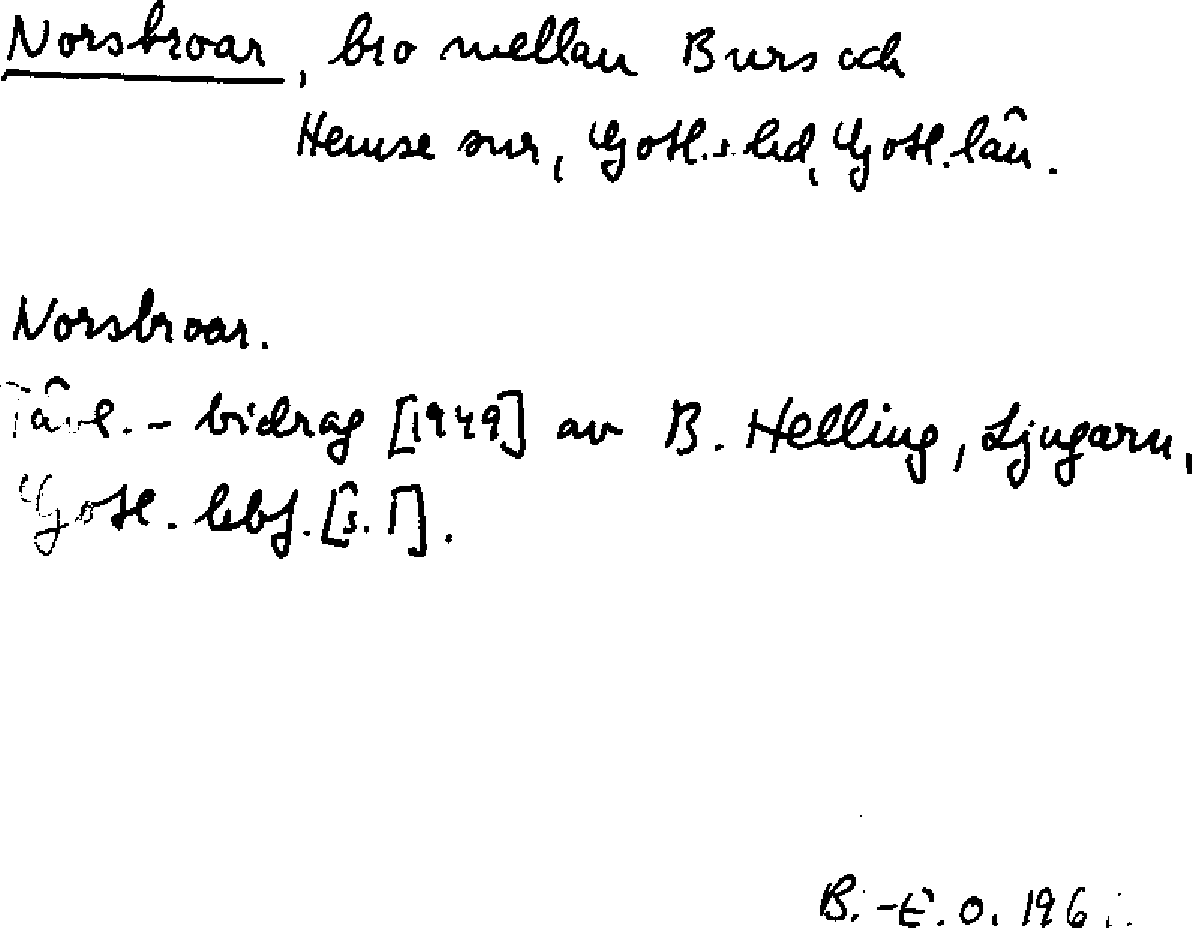 Norsbroar, bro mellan Burs och
Hemse snr, Gotl. s. hd, Gotl. län.
Norsbroar.
Tävl. - bidrag [1949] av B. Helling, Ljugarn,
Gotl. lbf. [s. 1].
B.-E. O. 196